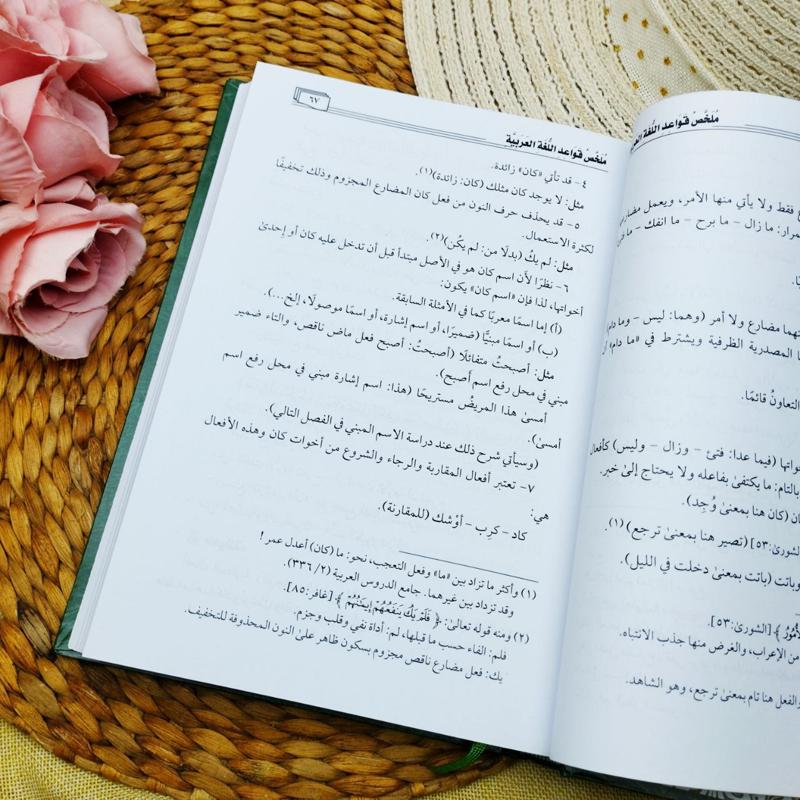 مُلَخَّصُ قَواعد اللُّغة العر
فقط ولا يأتي منها الأمر، ويعمل
مرار: ما زال – ما برح – ما انفك – ما
هما مضارع ولا أمر (وهما: ليس – وما دام
المصدرية الظرفية ويشترط في «ما دام»
التعاونُ قائمًا.
(فيما عدا: فتئ – وزال – وليس) كأفعال
بالتام: ما يكتفي بفاعله ولا يحتاج إلى خبر.
(كان هنا بمعنىٰ وُجِد).
[الشورىٰ:٥٣] (تصير هنا بمعنىٰ ترجع)(١).
وباتت (باتت بمعنىٰ دخلت في الليل).
[الشورىٰ:٥٣].
من الإعراب، والغرض منها جذب الانتباه.
والفعل هنا تام بمعنىٰ ترجع، وهو الشاهد.
مُلَخَّصُ قَواعد اللُّغة العَرَبيَّة
٦٧
٤ – قد تأتي «كان» زائدة.
مثل: لا يوجد كان مثلك (كان: زائدة)(١).
٥ – قد يحذف حرف النون من فعل كان المضارع المجزوم وذلك تخفيفًا
لكثرة الاستعمال.
مثل: لم يكُ (بدلًا من: لم يكُن)(٢).
٦ – نظرًا لأن اسم كان هو في الأصل مبتدأ قبل أن تدخل عليه كان أو إحدىٰ
أخواتها، لذا فإن «اسم كان» يكون:
(أ) إما اسمًا معربًا كما في الأمثلة السابقة.
(ب) أو اسمًا مبنيًّا (ضميرًا، أو اسم إشارة، أو اسمًا موصولًا، إلخ...).
مثل: أصبحتُ متفائلًا (أصبحتُ: أصبح فعل ماض ناقص، والتاء ضمير
مبني في محل رفع اسم أصبح).
أمسىٰ هذا المريضُ مستريحًا (هذا: اسم إشارة مبني في محل رفع اسم
أمسىٰ).
(وسيأتي شرح ذلك عند دراسة الاسم المبني في الفصل التالي).
٧ – تعتبر أفعال المقاربة والرجاء والشروع من أخوات كان وهذه الأفعال
هي:
كاد – كرب – أوْشك (للمقارنة).
(١) وأكثر ما تزاد بين «ما» وفعل التعجب، نحو: ما (كان) أعدل عمر !
وقد تزداد بين غيرهما. جامع الدروس العربية (٢/ ٣٣٦).
(٢) ومنه قوله تعالىٰ: ﴿ فَلَمْ يَكُ يَنفَعُهُمْ إِيمَٰنُهُمْ ﴾ [غافر:٨٥].
فلم: الفاء حسب ما قبلها، لم: أداة نفي وقلب وجزم.
يك: فعل مضارع ناقص مجزوم بسكون ظاهر علىٰ النون المحذوفة للتخفيف.